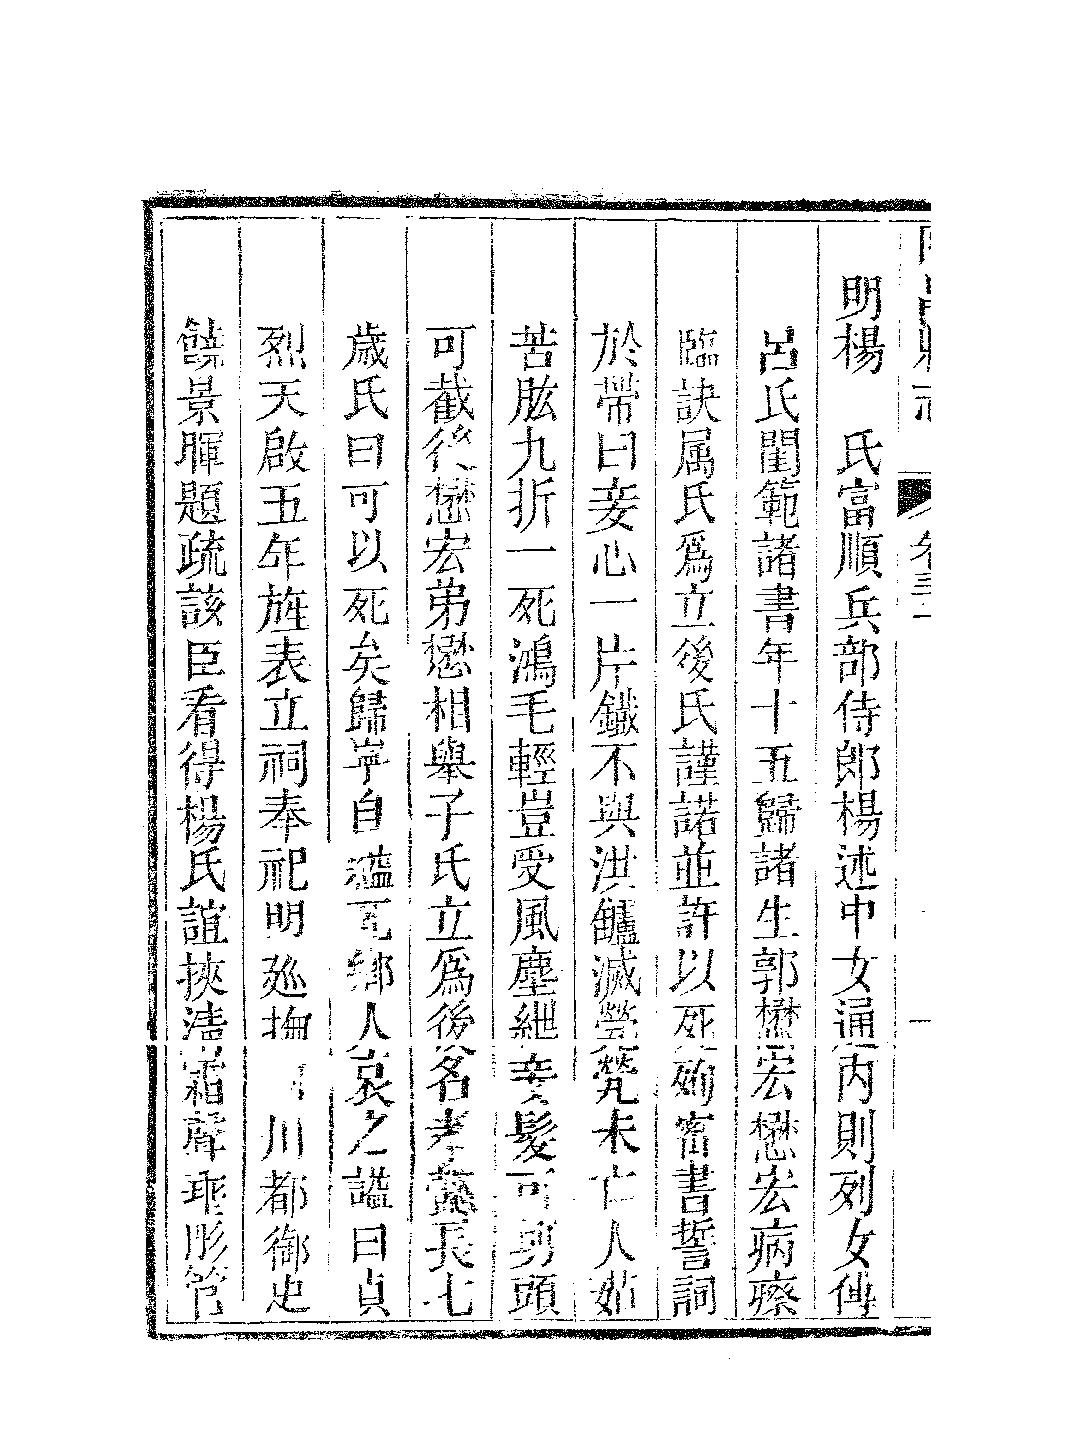 明楊　氏富順兵部侍郎楊述中女通內則列女傳
呂氏閨範諸書年十五歸諸生郭懋宏懋宏病瘵
臨訣属氏爲立後氏謹諾並許以死殉密書誓詞
於帶曰妾心一片鐵不與洪鑪滅煢煢未亡人茹
苦肱九折一死鴻毛輕豈受風塵紲妾髮可剪頭
可截後懋宏弟懋相舉子氏立爲後名孝懿長七
歲氏曰可以死矣歸寧自縊死鄉人哀之諡曰貞
烈天啟五年旌表立祠奉祀明廵撫川都御史
饒景暉題疏該臣看得楊氏誼挾淸霜聲垂彤管
卷三十